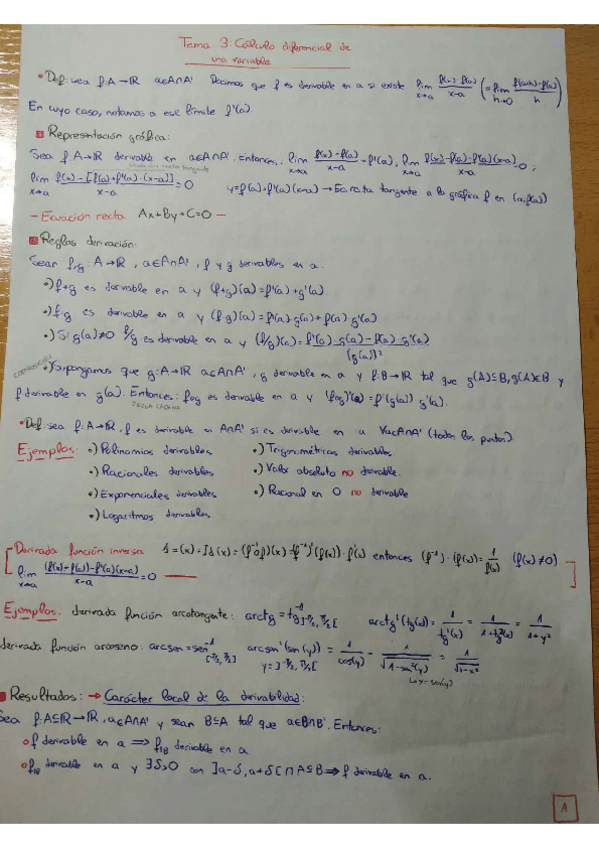 Tema 3: Cálculo diferencial de
una variable
• Def: sea f: A→ℝ a∈A∩A' Decimos que f es derivable en a si existe lim x→a (f(x)-f(a))/(x-a) (= lim h→0 (f(a+h)-f(a))/h)
En cuyo caso, notamos a ese límite f'(a).
Representación gráfica:
Sea f: A→ℝ derivable en a∈A∩A'. Entonces, lim x→a (f(x)-f(a))/(x-a) = f'(a), lim x→a (f(x)-f(a)-f'(a)(x-a))/(x-a) = 0;
lim x→a (f(x)-[f(a)+f'(a)·(x-a)])/(x-a) = 0 y=f(a)+f'(a)(x-a) → Ec. recta tangente a la gráfica f en (a,f(a))
- Ecuación recta Ax+By+C=0 -
Reglas derivación:
Sean f,g: A→ℝ, a∈A∩A', f y g derivables en a.
•) f+g es derivable en a y (f+g)'(a)=f'(a)+g'(a)
•) f·g es derivable en a y (f·g)'(a)=f'(a)·g(a)+f(a)·g'(a)
•) Si g(a)≠0 f/g es derivable en a y (f/g)'(a)= (f'(a)·g(a)-f(a)·g'(a))/(g(a))²
•) Supongamos que g: A→ℝ a∈A∩A', g derivable en a y f: B→ℝ tal que g(A)⊆B, g(A)∈B y
f derivable en g(a). Entonces: f∘g es derivable en a y (f∘g)'(a)=f'(g(a))·g'(a).
REGLA CADENA
• Def: sea f: A→ℝ, f es derivable en A∩A' si es derivable en a ∀a∈A∩A' (todos los puntos).
Ejemplos: •) Polinomios derivables •) Trigonométricas derivables
•) Racionales derivables •) Valor absoluto no derivable.
•) Exponenciales derivables •) Racional en 0 no derivable
•) Logaritmos derivables
Derivada función inversa 1=(x)=Id(x)=(f⁻¹∘f)(x)=(f⁻¹)'(f(x))·f'(x) entonces (f⁻¹)·(f(x))=1/f'(x) (f'(x)≠0)
lim x→a (f(x)-f(a)-f'(a)(x-a))/(x-a)=0
Ejemplos: derivada función arcotangente: arctg=tg⁻¹]-π/2,π/2[ arctg'(tg(x))=1/tg'(x)=1/(1+tg²(x))=1/(1+y²)
derivada función arcoseno: arcsen=sen⁻¹[-π/2,π/2] arcsen'(sen(y))=1/cos(y)=1/√(1-sen²(y))=1/√(1-x²)
y=]-π/2,π/2[ x=sen(y)
Resultados: → Carácter local de la derivabilidad:
Sea f: A⊆ℝ→ℝ, a∈A∩A' y sean B⊆A tal que a∈B∩B'. Entonces:
○ f derivable en a ⟹ f|B derivable en a
○ f|B derivable en a y ∃δ>0 con ]a-δ,a+δ[∩A⊆B ⟹ f derivable en a.
A